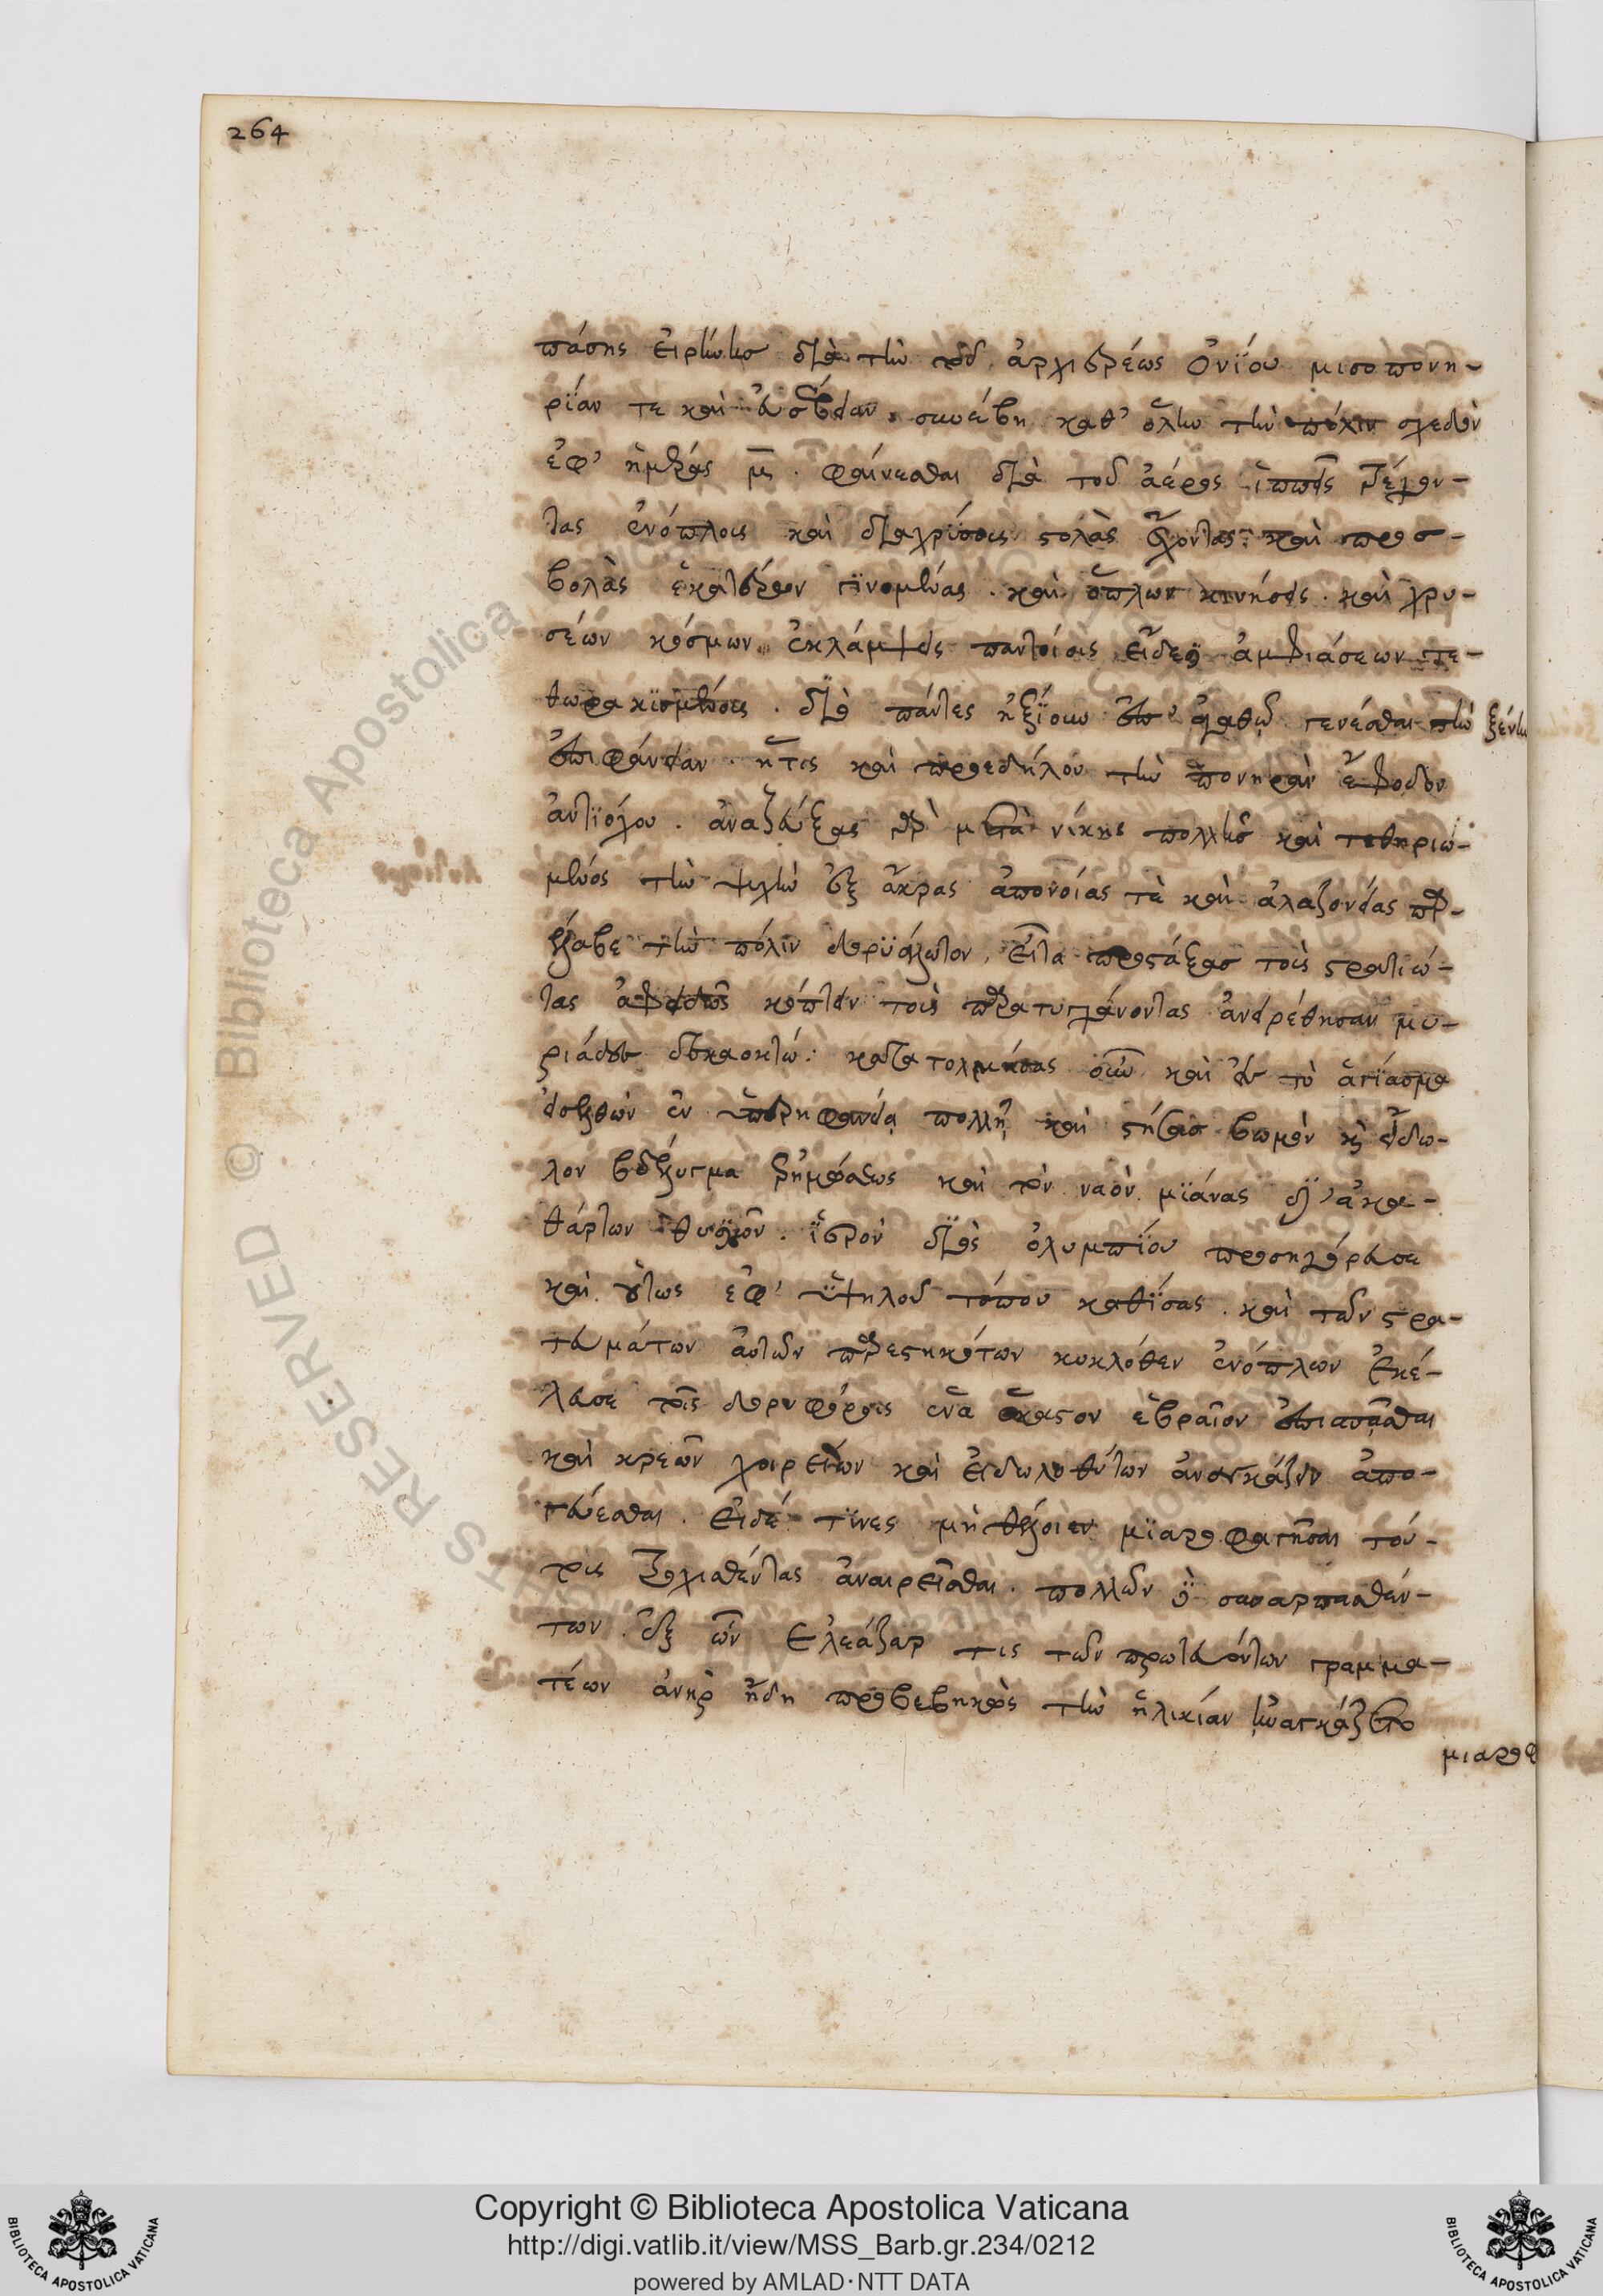 264
πάσης εἰρήνης διὰ τὴν τοῦ ἀρχιερέως Ὀνίου μισοπονη-
ρίαν τε καὶ εὐσέβειαν. συνέβη καθ' ὅλην τὴν πόλιν σχεδὸν
ἐφ' ἡμέρας μ̅. φαίνεσθαι διὰ τοῦ ἀέρος ἱππεῖς τρέχον-
τας ἐνόπλους καὶ διαχρύσους στολὰς ἔχοντας. καὶ προσ-
βολὰς ἑκατέρων γινομένας. καὶ ὅπλων κινήσεις. καὶ χρυ-
σέων κόσμων ἐκλάμψεις παντοίοις εἴδεσι ἀμφιάσεων τε-
θωρακισμένοις. διὸ πάντες ἠξίουν ἐπ' ἀγαθῷ γενέσθαι τὴν ξένην
ἐπιφάνειαν. ἥτις καὶ προεδήλου τὴν πονηρὰν ἔφοδον
ἀντιόχου. ἀναζεύξας γὰρ μετὰ νίκης πολλῆς καὶ τεθηριω-
μένος τὴν ψυχὴν ἐξ ἄκρας ἀπονοίας τὲ καὶ ἀλαζονείας παρ-
έλαβε τὴν πόλιν δορυάλωτον, εἶτα προστάξας τοῖς στρατιώ-
τας ἀφειδῶς κόπτειν τοὺς παρατυγχάνοντας ἀνειρέθησαν μυ-
ριάδες δεκαοκτώ: κατατολμήσας οὖν καὶ εἰς τὸ ἁγίασμα
εἰσελθὼν ἐν ὑπερηφανείᾳ πολλῇ καὶ στήσας βωμὸν κὶ εἴδω-
λον βδέλυγμα ἐρημώσεως καὶ τὸν ναὸν μιάνας δι' ἀκα-
θάρτων θυσιῶν. ἱερὸν διὸς ὀλυμπίου προσηγόρευσε
καὶ οὕτως ἐφ' ὑψηλοῦ τόπου καθίσας. καὶ τῶν στρα-
τευμάτων αὐτῶν παρεστηκότων κυκλόθεν ἐνόπλων ἐκέ-
λευσε τοῖς δορυφόροις ἕνα ἕκαστον ἑβραῖον ἐπισπᾶσθαι
καὶ κρεῶν χοιρείων καὶ εἰδωλοθύτων ἀναγκάζειν ἀπο-
γεύεσθαι. εἰδέ τινες μὴ θέλοιεν μιαροφαγῆσαι τού-
τοις τροχισθέντας ἀναιρεῖσθαι. πολλῶν δὲ συναρπασθέν-
των. ἐξ ὧν Ἐλεάζαρ τις τῶν πρωτευόντων γραμμα-
τέων ἀνὴρ ἤδη προβεβηκὼς τὴν ἡλικίαν ἠναγκάζετο
μιαροφ
Copyright © Biblioteca Apostolica Vaticana
http://digi.vatlib.it/view/MSS_Barb.gr.234/0212
powered by AMLAD·NTT DATA
BIBLIOTECA APOSTOLICA VATICANA
BIBLIOTECA APOSTOLICA VATICANA